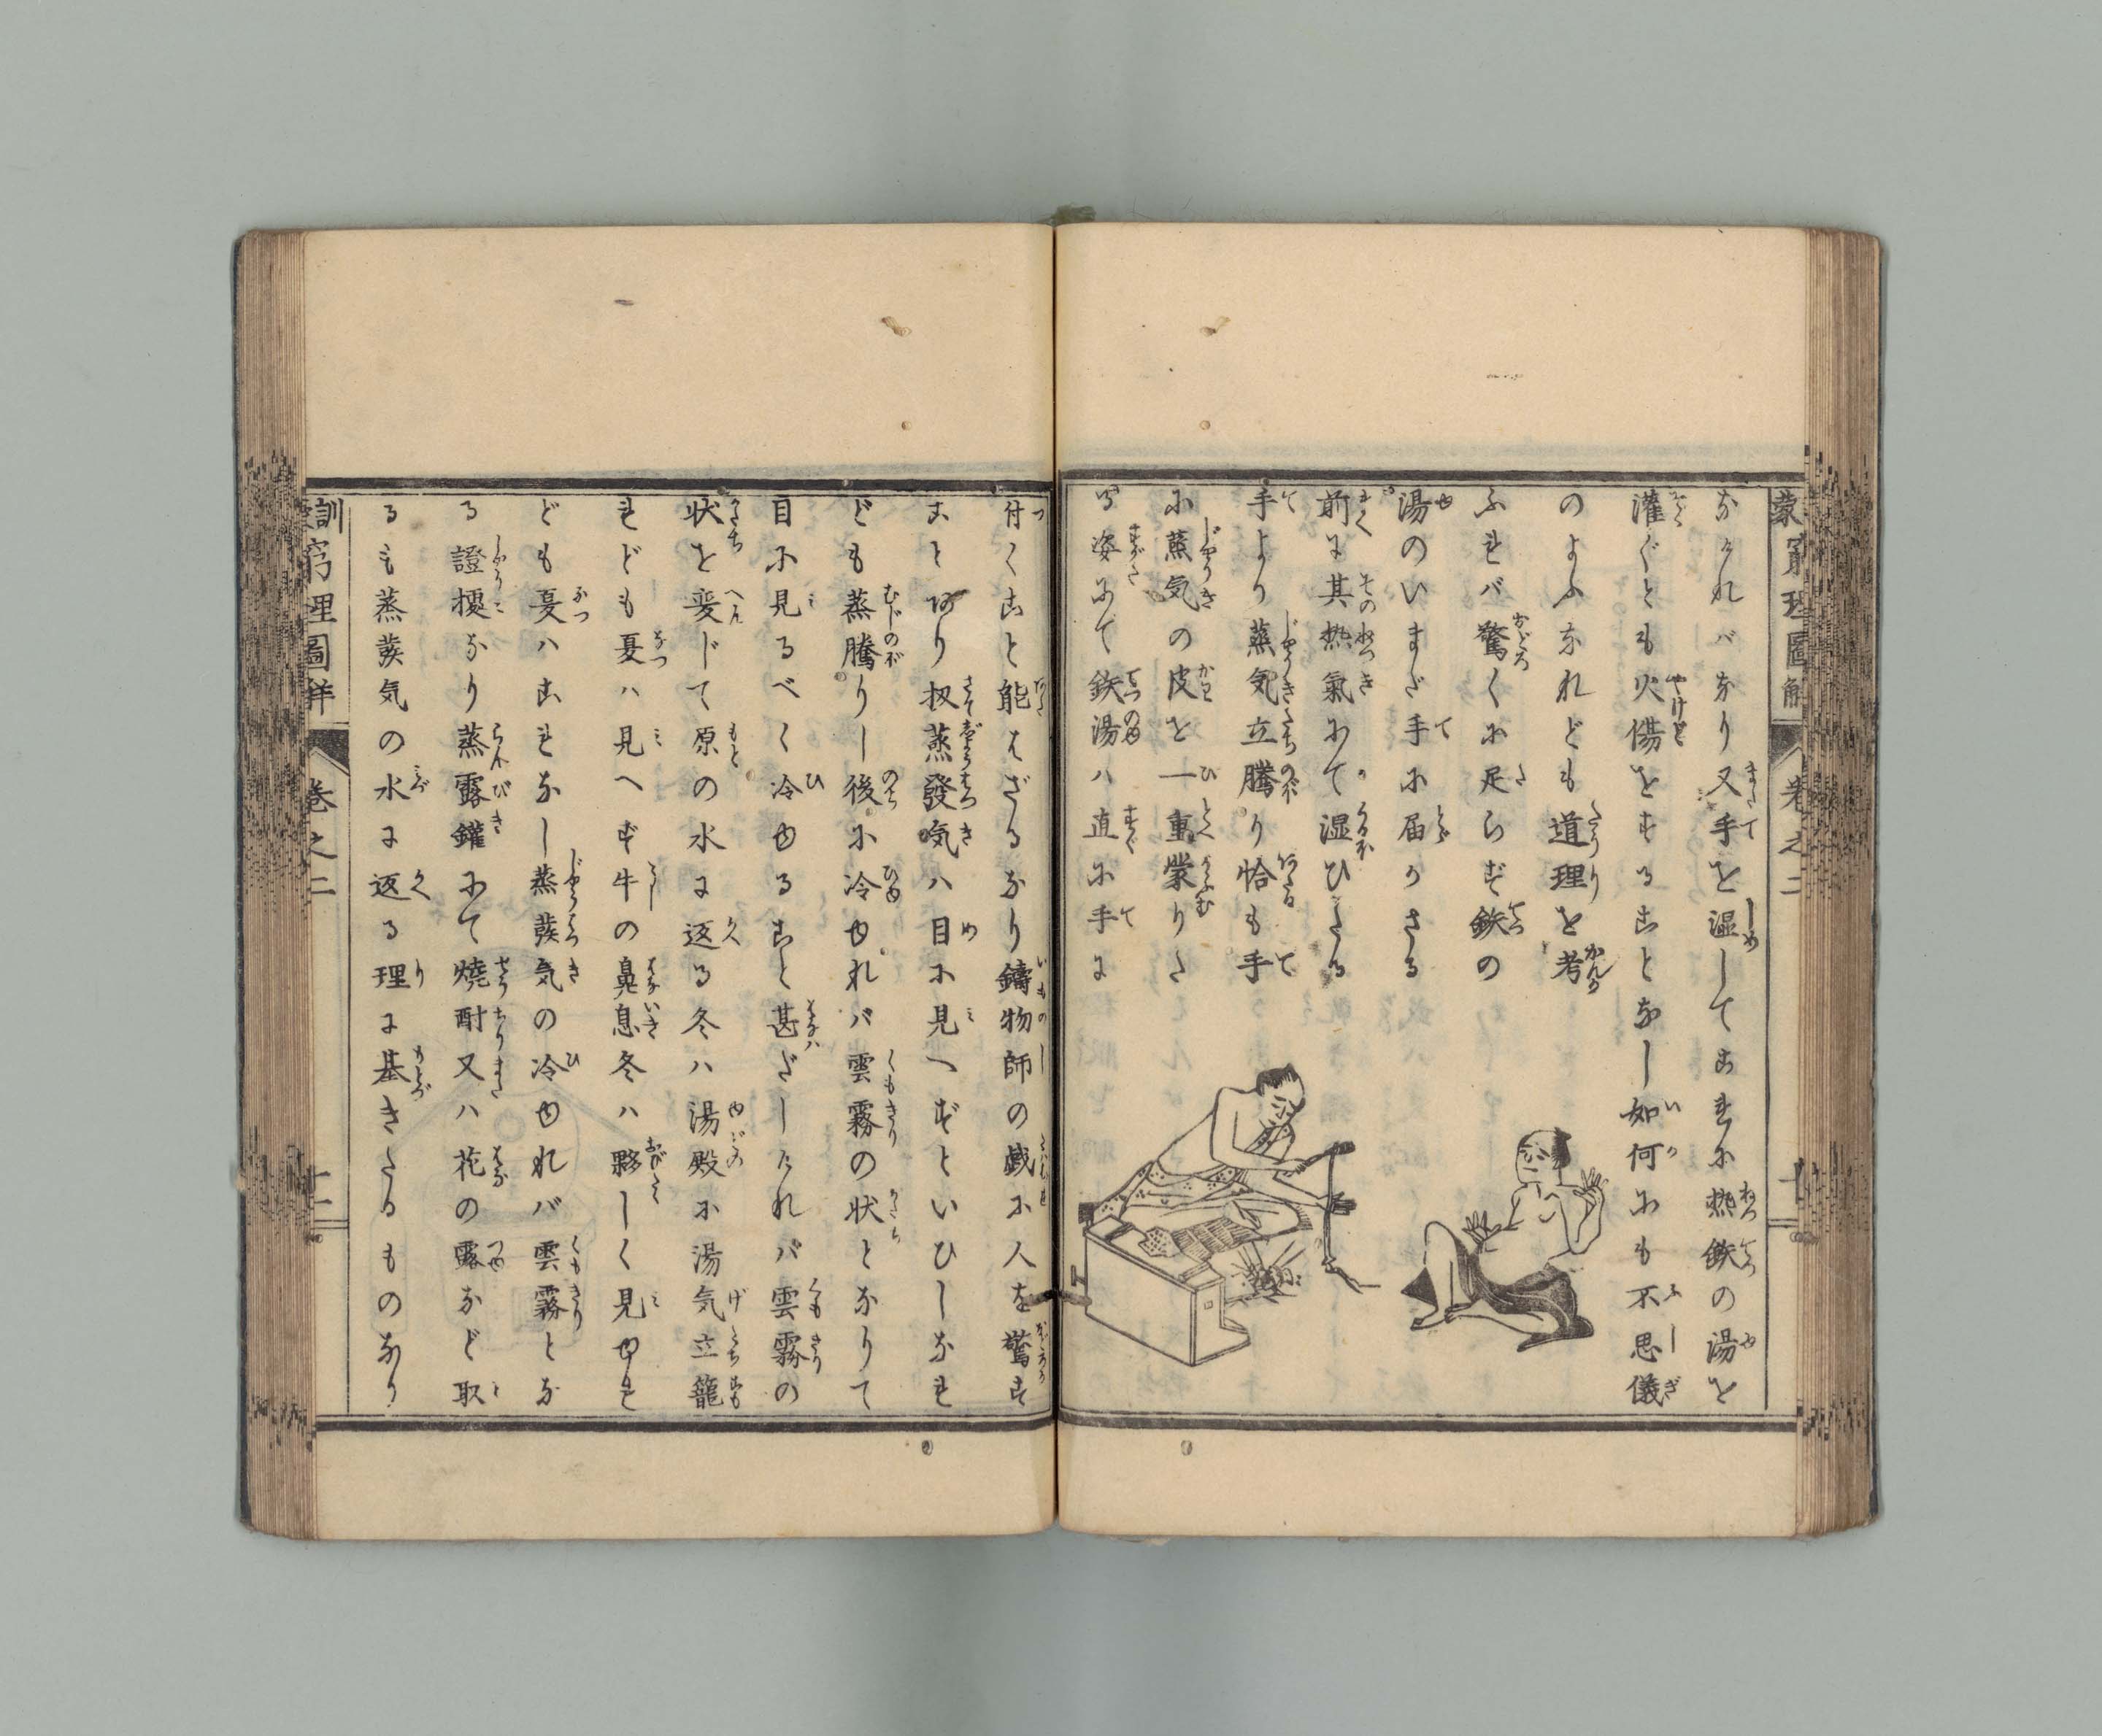 蒙窮理圖解　巻之二　十一
なければなり又手を温してこれに熱鉄の湯を
灌ぐとも火傷をすることなし如何にも不思儀
のよふなれども道理を考
ふれバ驚くに足らず鉄の
湯のいまだ手に届かさる
前に其熱氣にて湿ひたる
手より蒸気立騰り恰も手
に蒸気の皮を一重蒙りた
る姿にて鉄湯ハ直に手に
付くこと能はざるなり鑄物師の戯に人を驚す
ことあり扨蒸發気ハ目に見へずといひしなれ
ども蒸騰りし後に冷ゆれバ雲霧の状となりて
目に見るべく冷ゆること甚ざしけれバ雲霧の
状を変じて原の水に返る冬ハ湯殿に湯気立籠
れども夏ハ見へず牛の鼻息冬ハ夥しく見ゆれ
ども夏ハこれなし蒸發気の冷ゆれバ雲霧とな
る證據なり蒸露鑵にて燒酎又ハ花の露など取
るも蒸發気の水に返る理に基きたるものなり
訓蒙窮理圖解　巻之二　十一